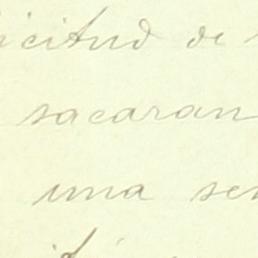 icitud de
sacaran
una se